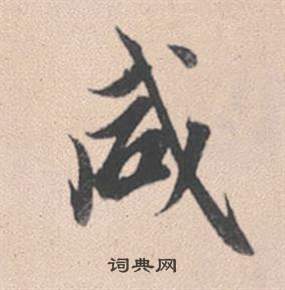 咸
词典网